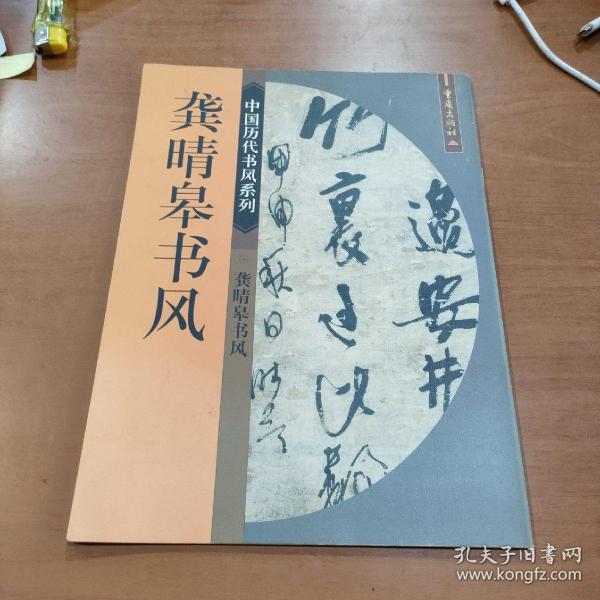 龚晴皋书风
中国历代书风系列
龚晴皋书风
重庆出版社
邉安井
竹裏
甲申秋日晴皋
孔夫子旧书网
www.kongfz.com